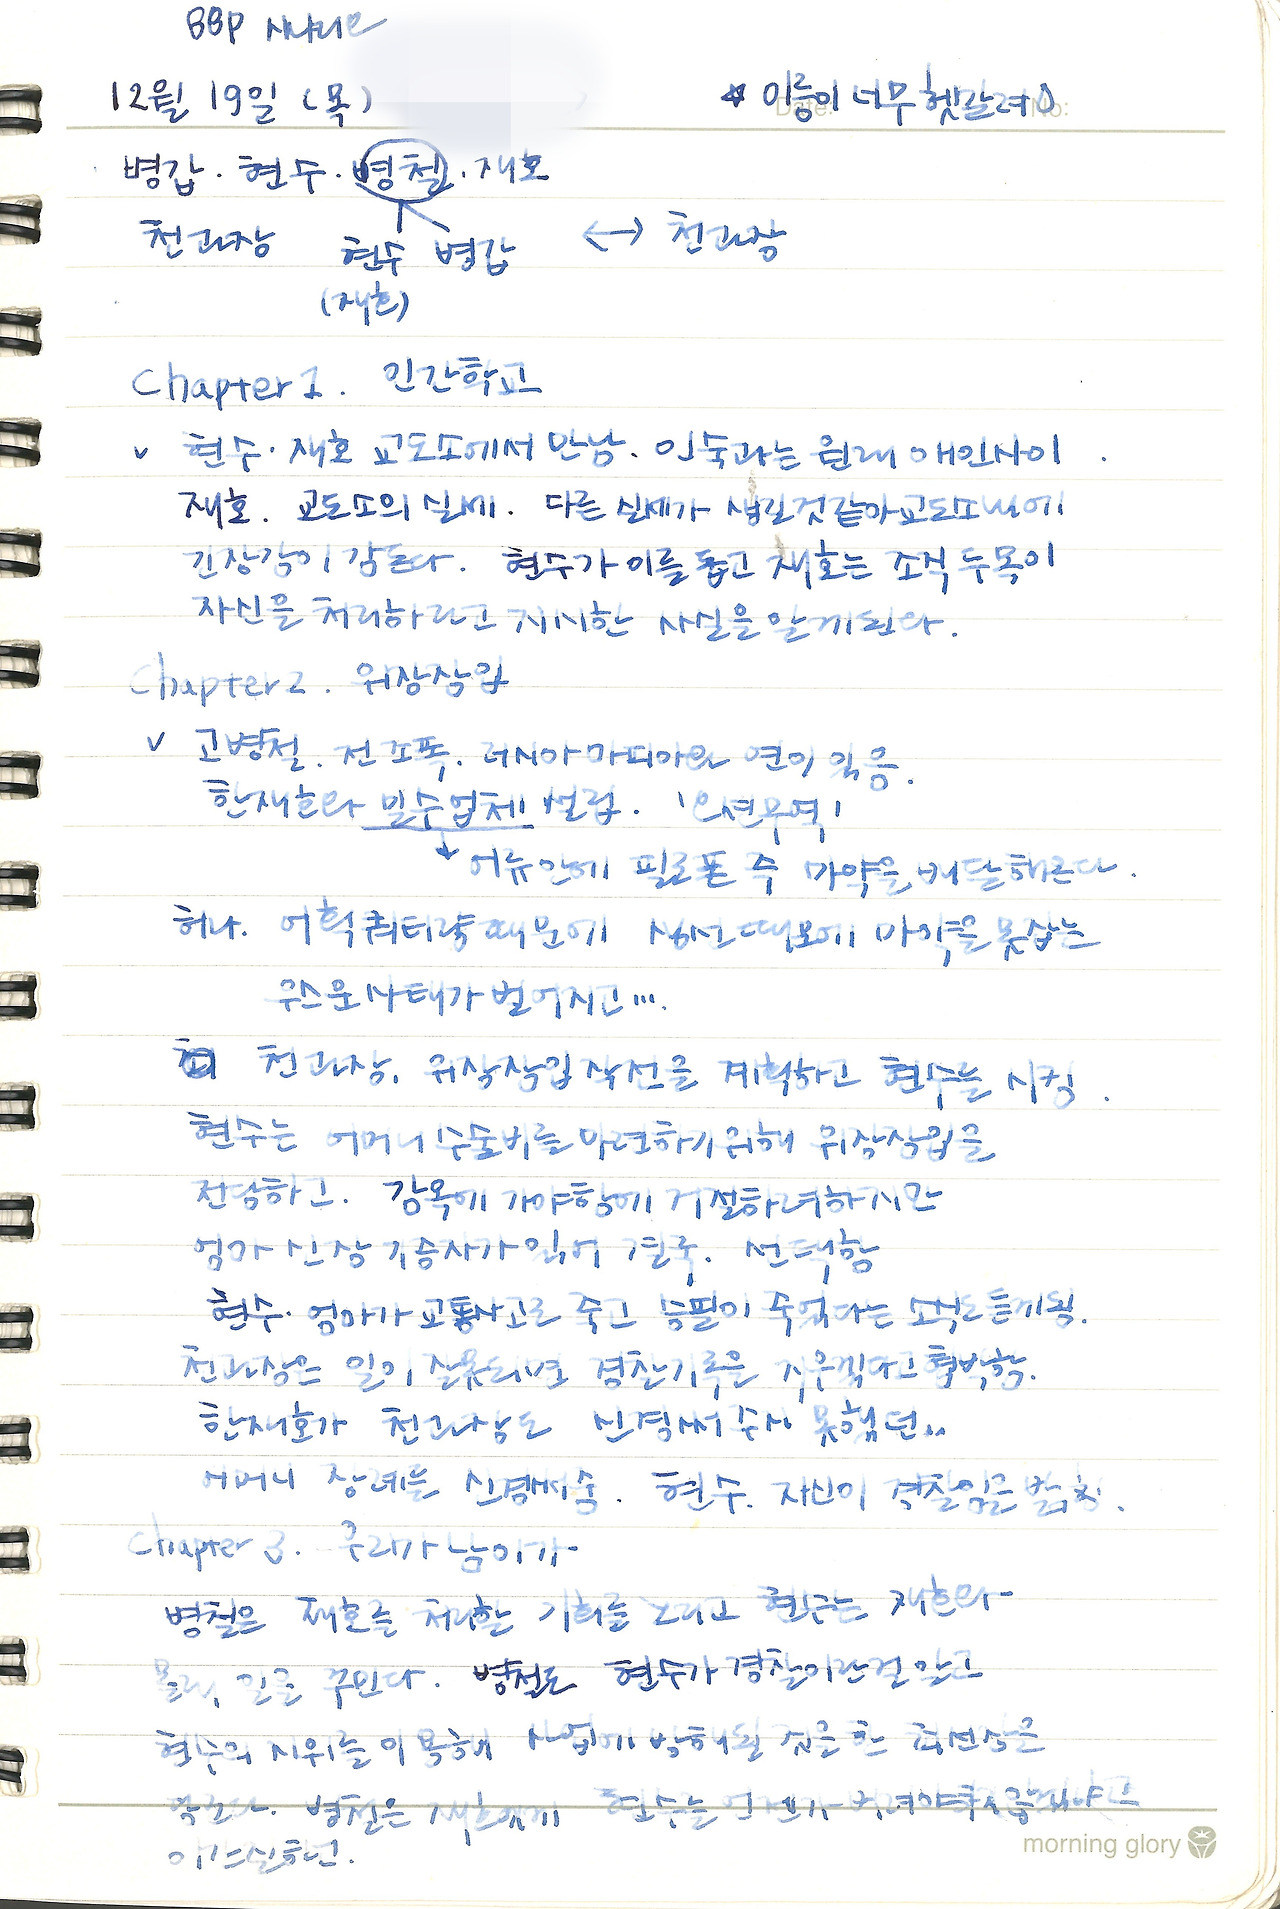 BBP 시나리오
12월 19일 (목)
* 이름이 너무 헷갈려
병갑 · 현수 · 병철 · 재호
천과장 현수 병갑 ↔ 천과장
(재호)
Chapter 1. 인간학교
v 현수 · 재호 교도소에서 만남. 인숙과는 원래 애인사이.
재호. 교도소의 실세. 다른 실세가 생길것같아 교도소내에
긴장감이 감돈다. 현수가 이를 돕고 재호는 조직 두목이
자신을 처리하라고 지시한 사실을 알게된다.
Chapter 2. 위장잠입
v 고병철. 전 조폭. 러시아 마피아와 연이 있음.
한재호와 밀수업체 설립. '오션무역'
↓ 어류안에 필로폰 즉 마약을 배달해온다.
허나. 어획쿼터량 때문에 생선 때문에 마약을 못잡는
우스운 사태가 벌어지고...
천과장. 위장잠입 작전을 계획하고 현수를 시킴.
현수는 어머니 수술비를 마련하기위해 위장잠입을
전담하고. 감옥에 가야함에 거절하려하지만
엄마 신장 기증자가 있어 결국. 선택함
현수. 엄마가 교통사고로 죽고 범이 죽었다는 소식도 듣게됨.
천과장은 일이 잘못되면 경찰기록을 지운다고 협박함.
한재호가 천과장도 신경써 주지 못했던..
어머니 장례를 신경써줌. 현수. 자신이 경찰임을 밝힘.
Chapter 3. 우리가 남이가
병철은 재호를 처리할 기회를 노리고 현수는 재호와
몰래, 일을 꾸민다. 병철도 현수가 경찰이란걸 알고
현수의 지위를 이용해 사업에 방해될 것을 한
병철은 재호에게 현수는 언제가